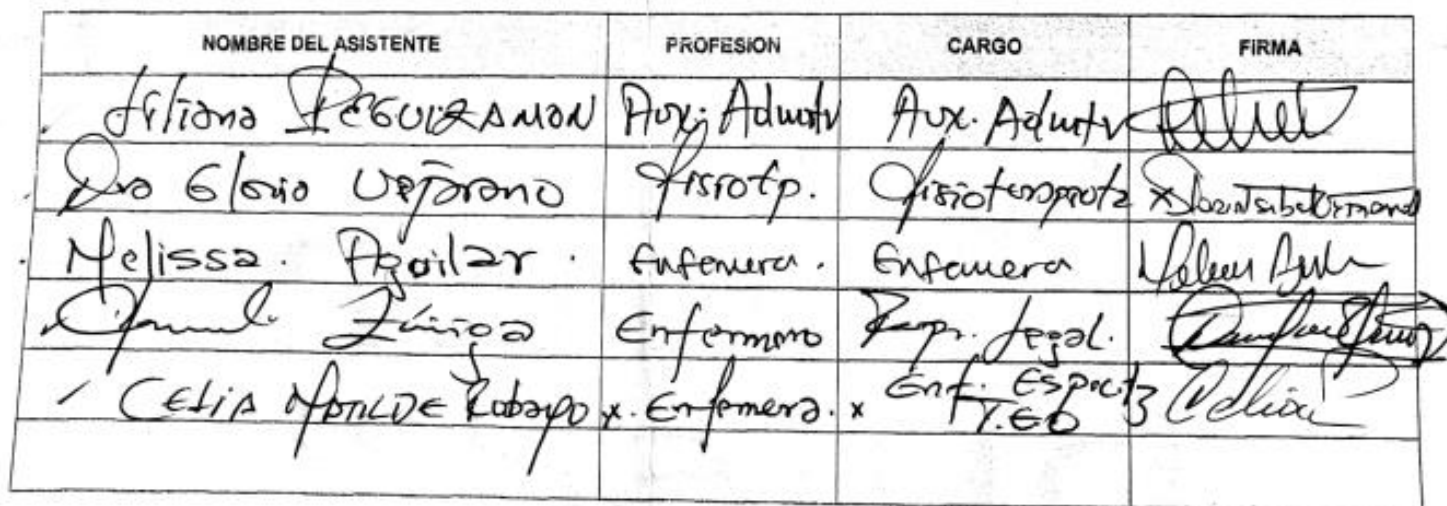 NOMBRE DEL ASISTENTE PROFESION CARGO FIRMA
Liliana PEGUIRAMON Aux. Admtv Aux. Admtv
Dra Gloria Vejarano fisiotp. fisioterapeuta
Melissa. Aguilar. Enfermera. Enfermera
Zúñiga Enfermero Repr. Legal.
CELIA MATILDE Robayo x. Enfermera. x Enf. Especitz
T.E.O